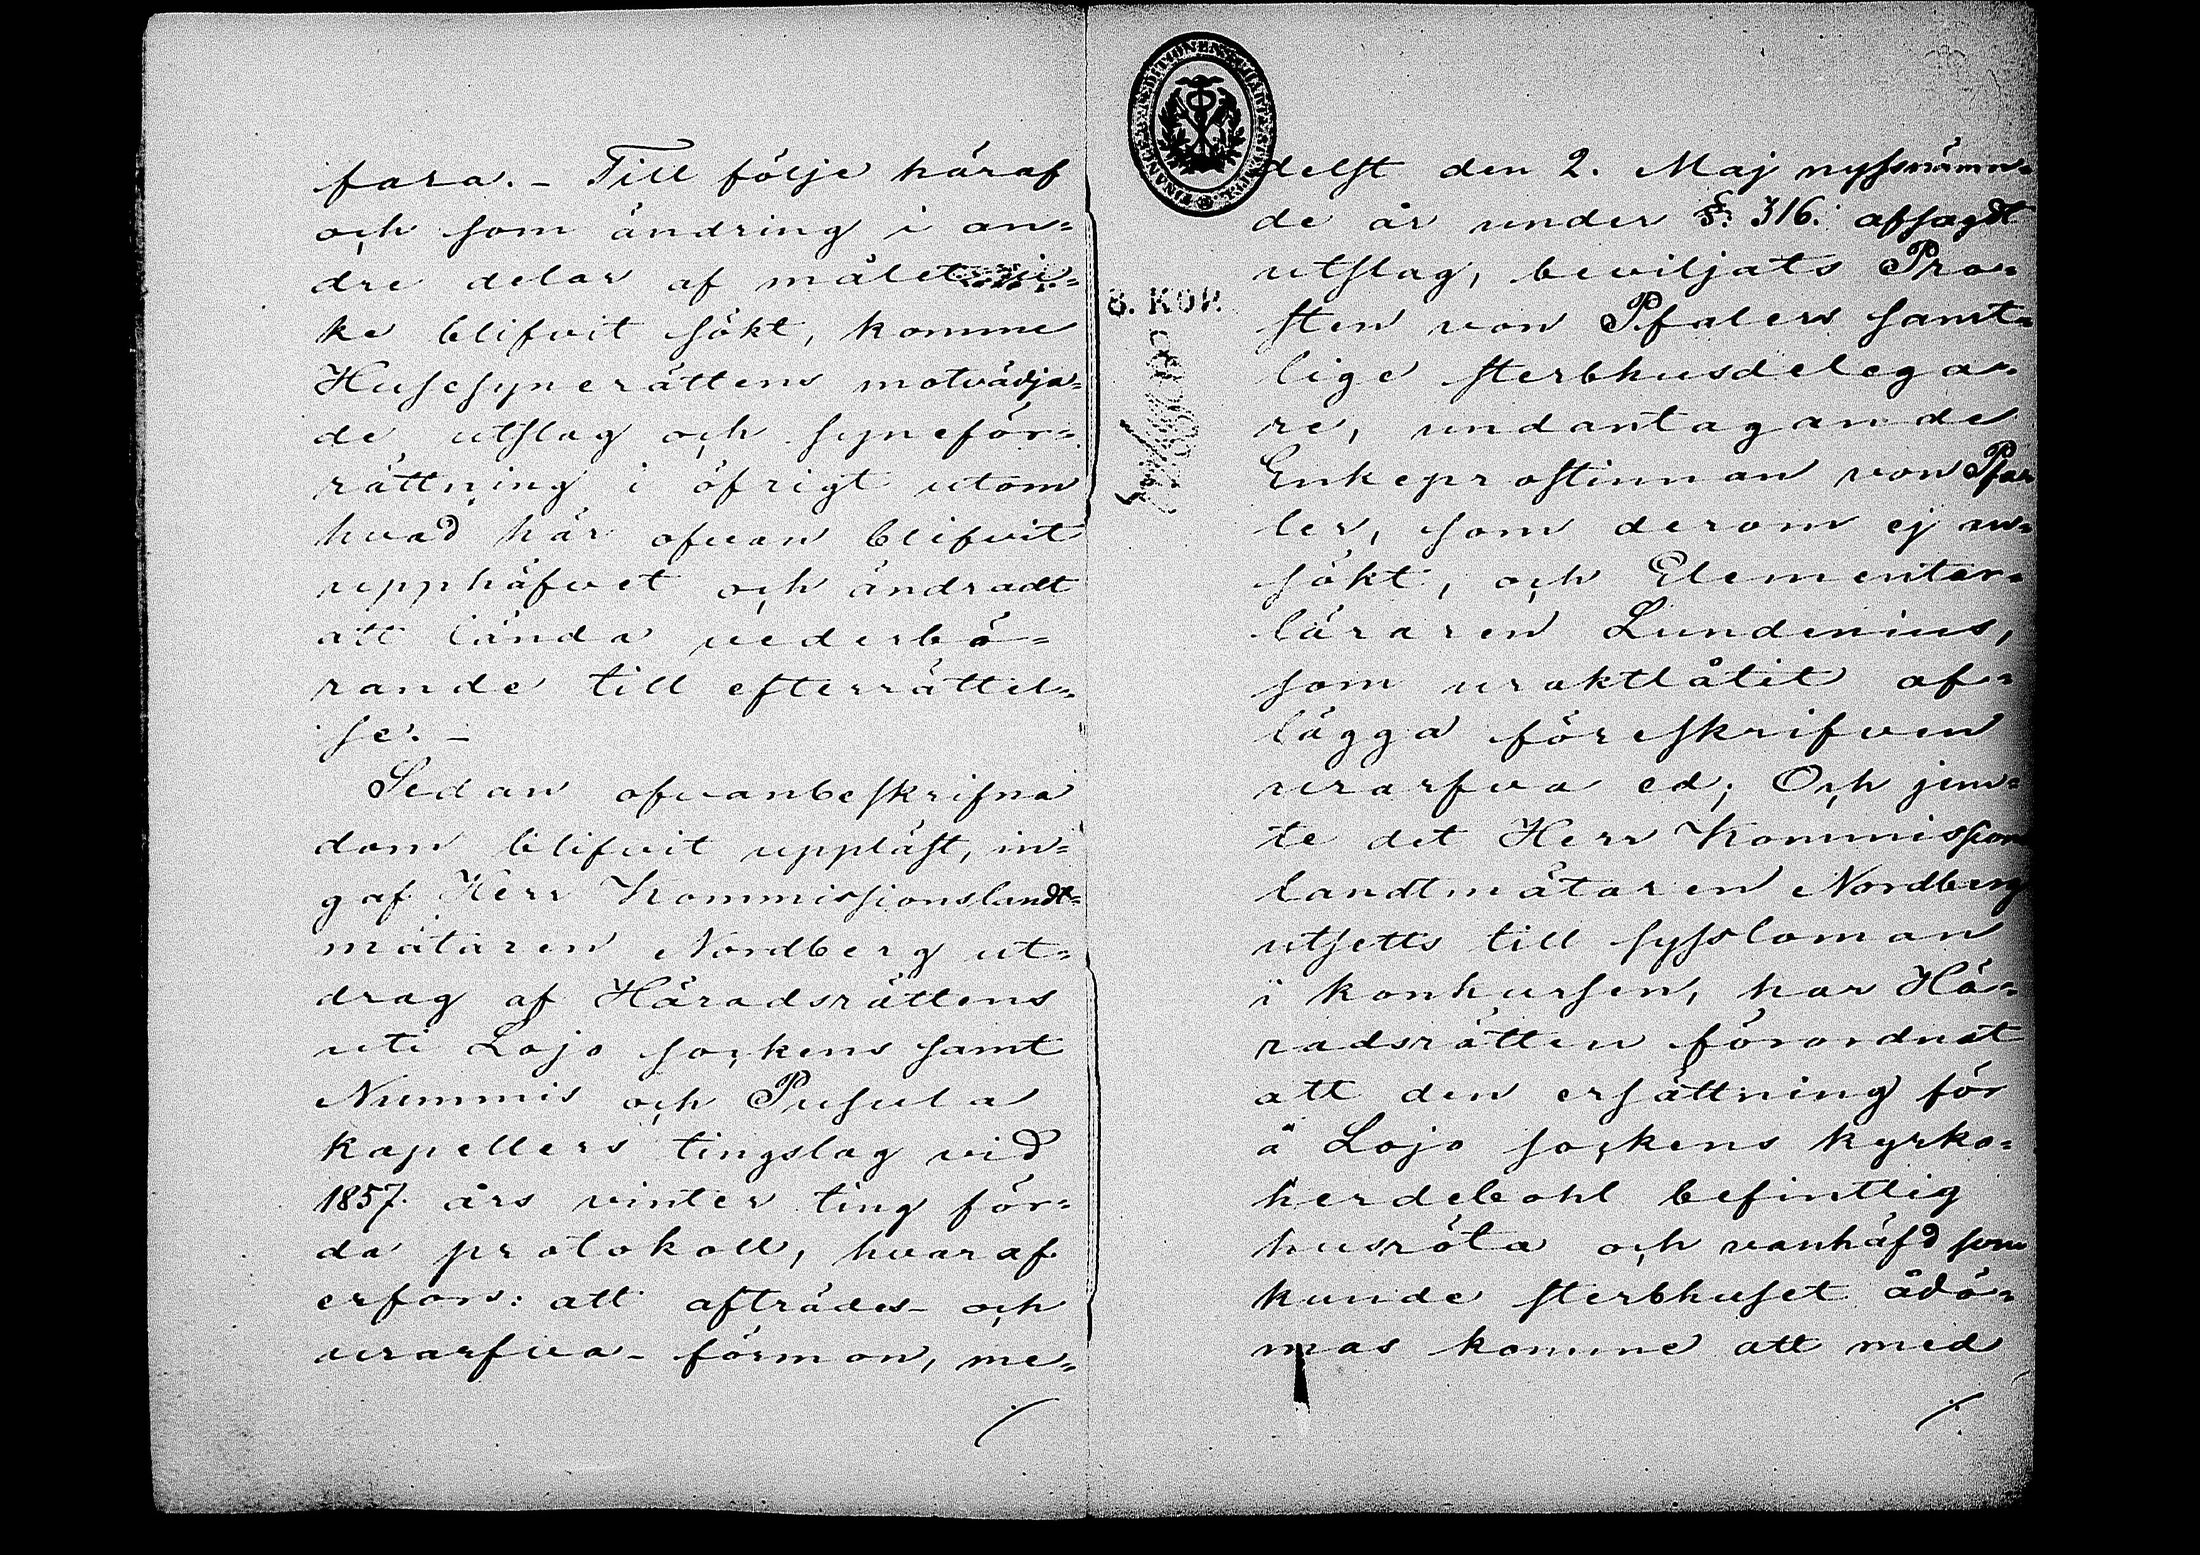 fara. – Till följe häraf
och som ändring i an=
dre delar af målet ic=
ke blifvit sökt, komme
Husesynerättens motvädja=
de utslag och syneför=
rättning i öfrigt utom
hvad här ofvan blifvit
upphäfvet och ändradt
att lända vederbö=
rande till efterrättel=
se. –
Sedan ofvanbeskrifna
dom blifvit uppläst, in=
gaf Herr Kommissionslandt=
mätaren Nordberg ut=
drag af Häradsrättens
uti Lojo sockens samt
Nummis och Pusula
kapellers tingslag vid
1857. års vinter ting för=
da protokoll, hvaraf
erfors: att afträdes- och
urarfva- förmon, me=
8. KOP.
delst den 2. Maj nyssnämn=
de år under §. 316. afsagdt
utslag, beviljats Pro=
sten von Pfalers samt=
lige sterbhusdelega=
re, undantagande
Enkeprostinnan von Pfa
ler, som derom ej an=
sökt, och Elementar=
läraren Lundenius,
som uraktlåtit af=
lägga föreskrifven
urarfva ed; Och jem=
te det Herr Kommissions
landtmätaren Nordberg
utsetts till syssloman
i konkursen, har Hä=
radsrätten förordnat
att den ersättning för
å Lojo sockens kyrko=
herdebohl befintlig
husröta och vanhäfd som
kunde sterbhuset ådö=
mas komme att med